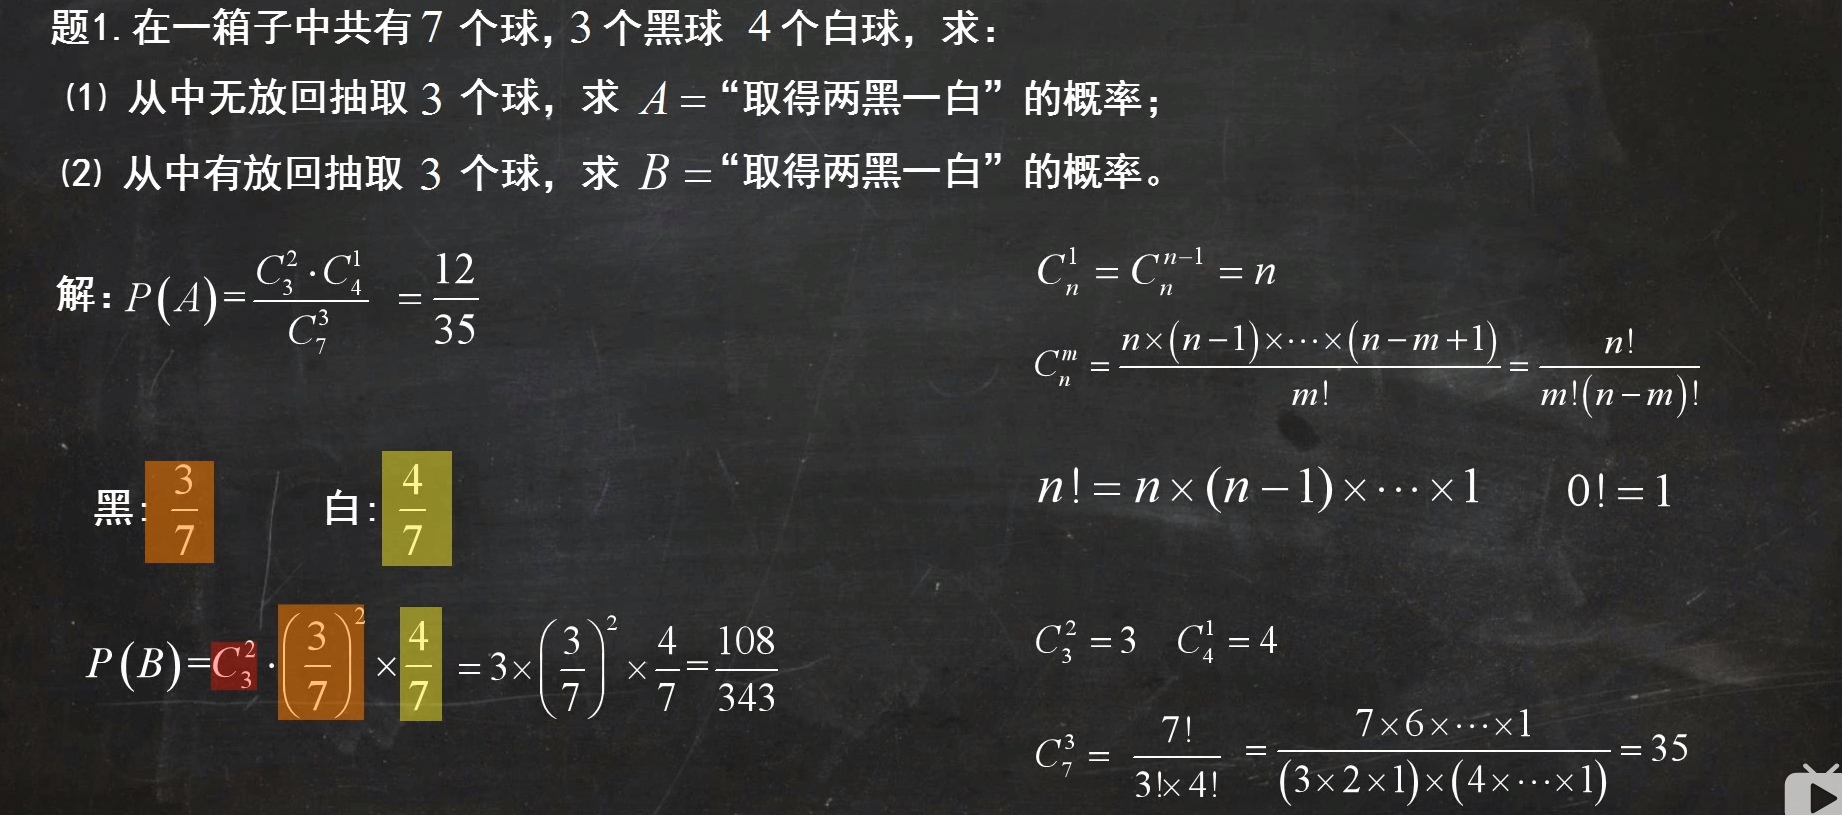 题1. 在一箱子中共有 7 个球，3 个黑球 4 个白球，求：
(1) 从中无放回抽取 3 个球，求 A = “取得两黑一白” 的概率；
(2) 从中有放回抽取 3 个球，求 B = “取得两黑一白” 的概率。
解：P(A) = \frac{C_3^2 · C_4^1}{C_7^3} = \frac{12}{35}
C_n^1 = C_n^{n-1} = n
C_n^m = \frac{n×(n-1)×···×(n-m+1)}{m!} = \frac{n!}{m!(n-m)!}
n! = n×(n-1)×···×1 0! = 1
黑: \frac{3}{7} 白: \frac{4}{7}
P(B) = C_3^2 · (\frac{3}{7})^2 × \frac{4}{7} = 3×(\frac{3}{7})^2 × \frac{4}{7} = \frac{108}{343}
C_3^2 = 3 C_4^1 = 4
C_7^3 = \frac{7!}{3!×4!} = \frac{7×6×···×1}{(3×2×1)×(4×···×1)} = 35